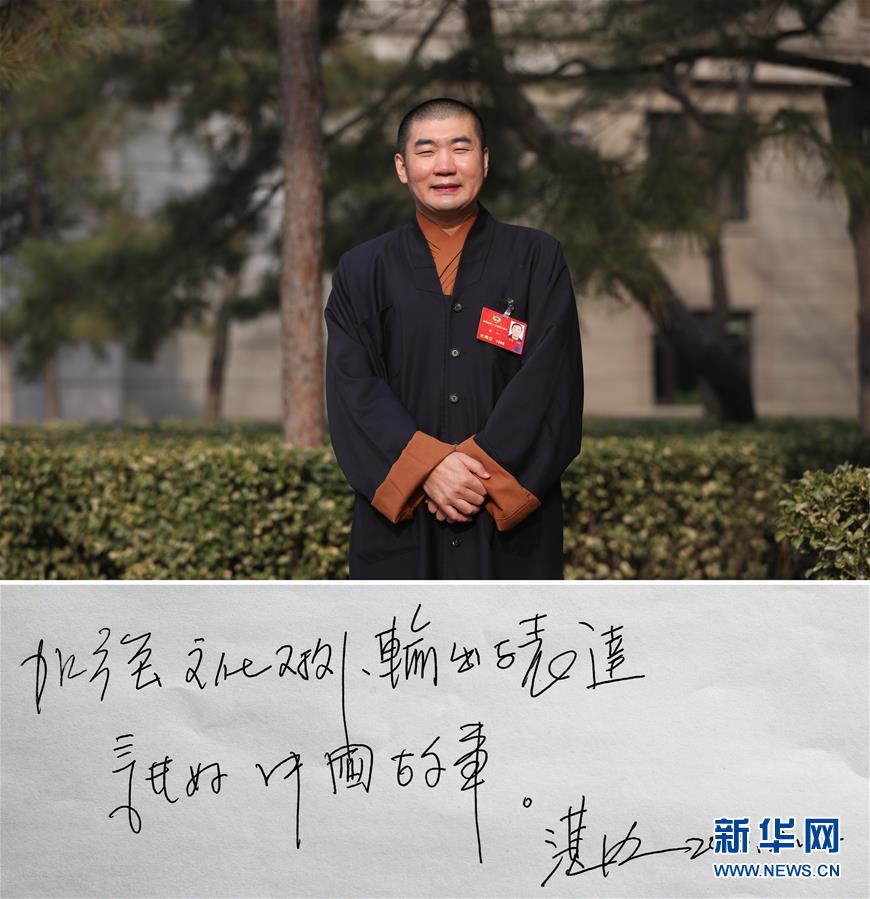 加强文化对外輸出与表達
講好中國故事。
湛如
新华网
WWW.NEWS.CN